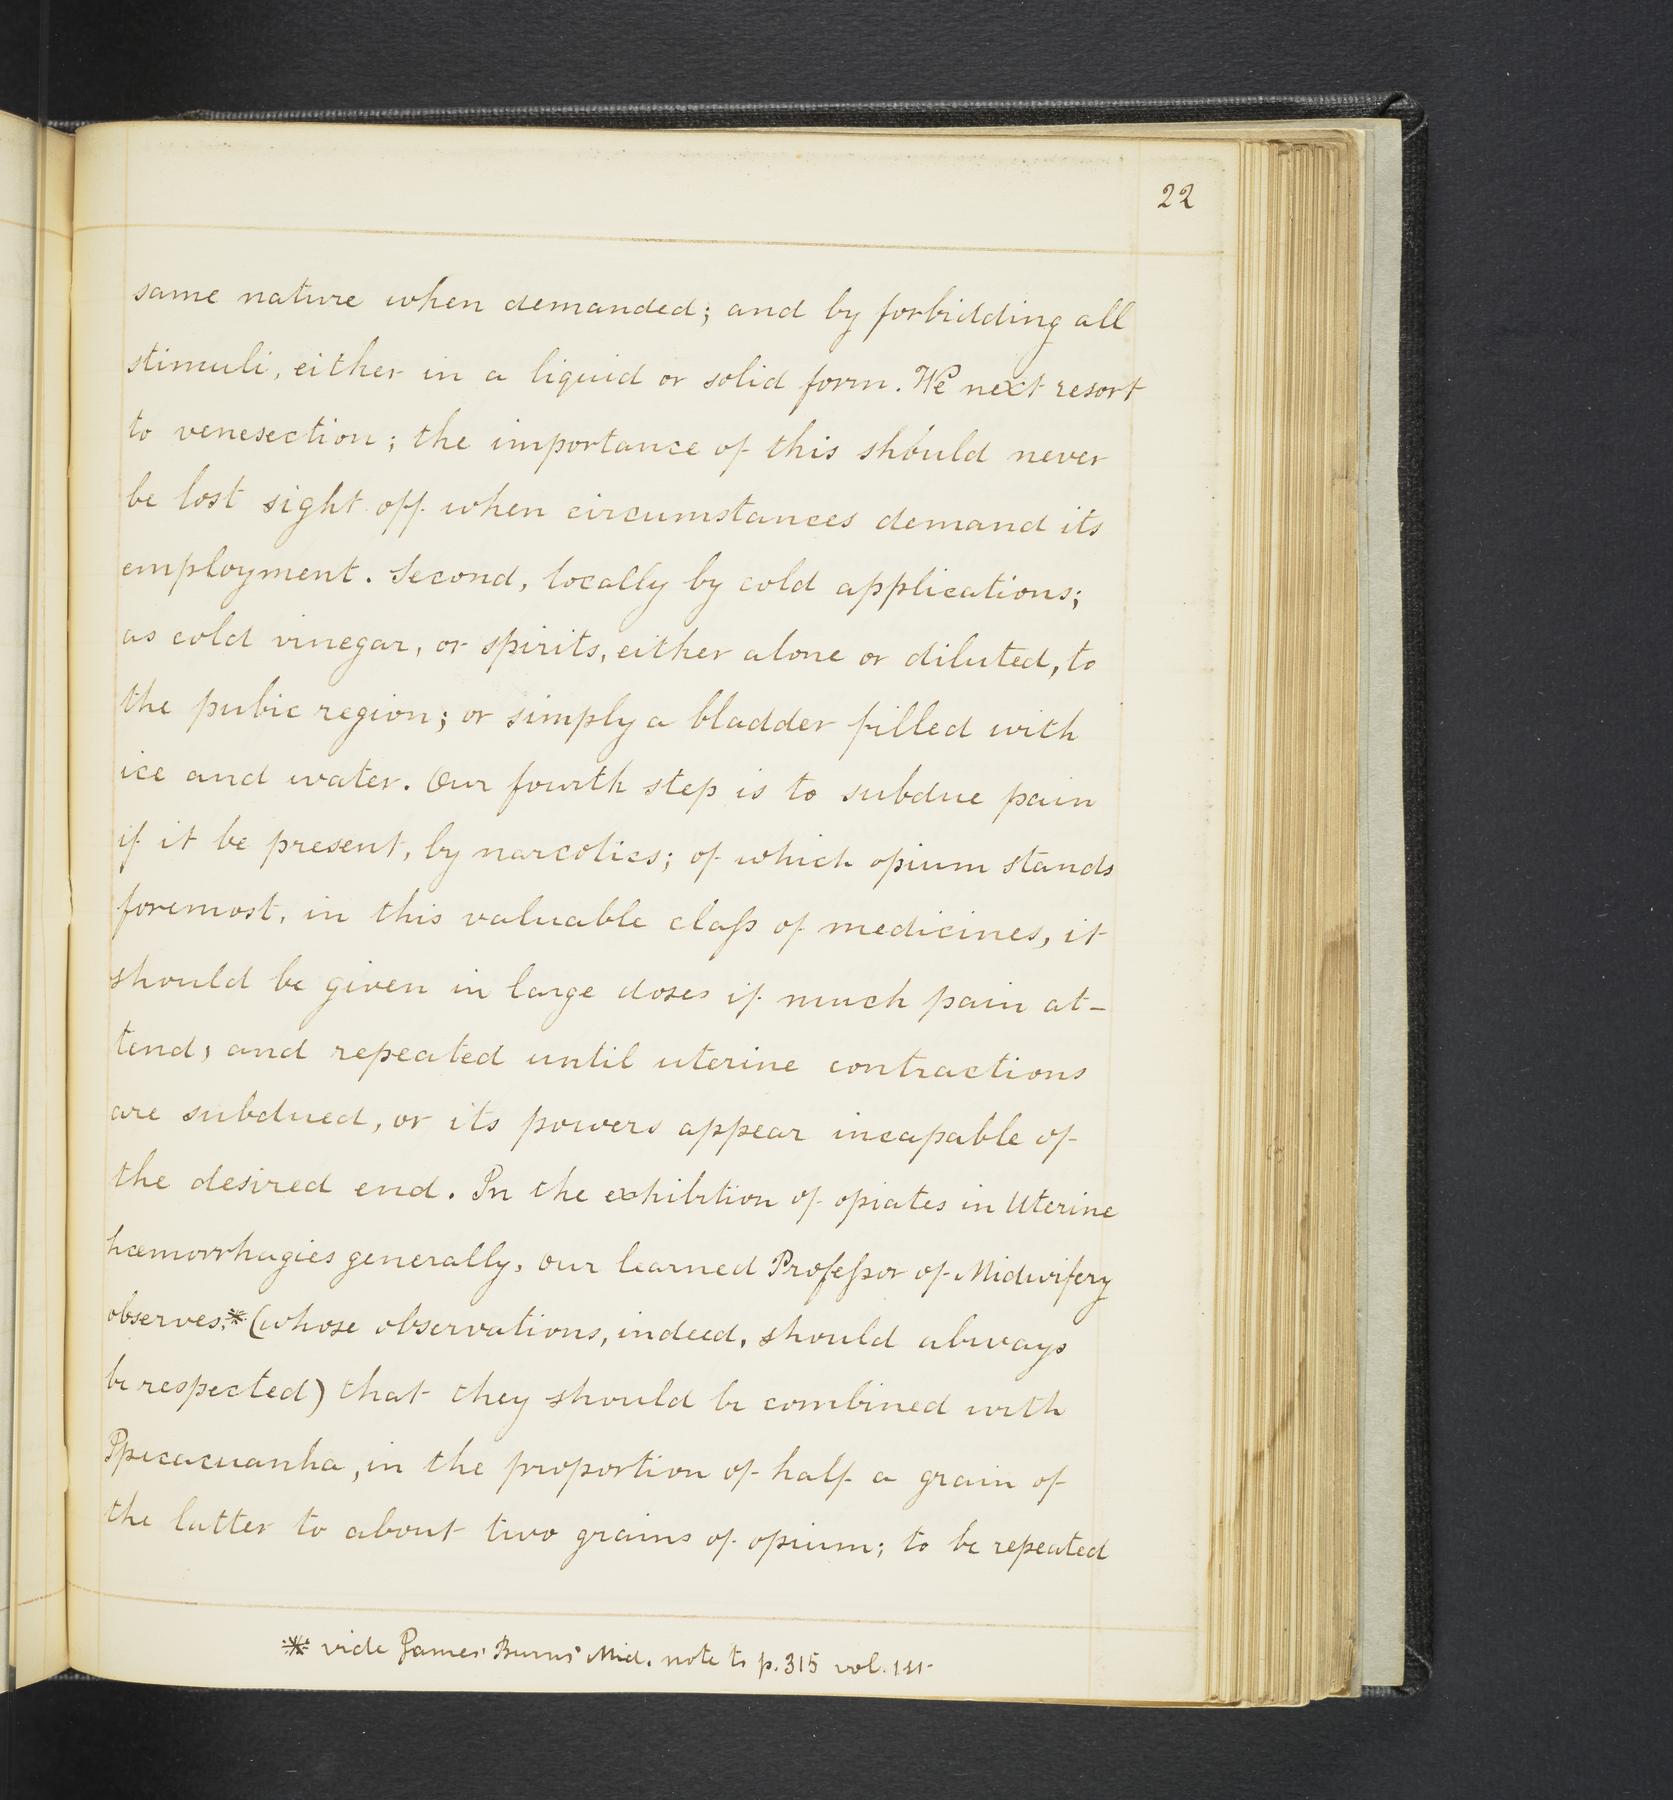 22
same nature when demanded; and by forbidding all
stimuli, either in a liquid or solid form. We next resort
to venesection; the importance of this should never
be lost sight off when circumstances demand its
employment. Second, locally by cold applications;
as cold vinegar, or spirits, either alone or diluted, to
the pubic region; or simply a bladder filled with
ice and water. Our fourth step is to subdue pain
if it be present, by narcotics; of which opium stands
foremost, in this valuable claſs of medicines, it
should be given in large doses if much pain at-
tend; and repeated until uterine contractions
are subdued, or its powers appear incapable of
the desired end. In the exhibition of opiates in Uterine
hæmorrhagies generally, our learned Profeſsor of Midwifery
observes,* (whose observations, indeed, should always
be respected) that they should be combined with
Ipicacuanha, in the proportion of half a grain of
the latter to about two grains of opium; to be repeated
* vide James' Burns' Mid. note to p. 315 vol. 1st